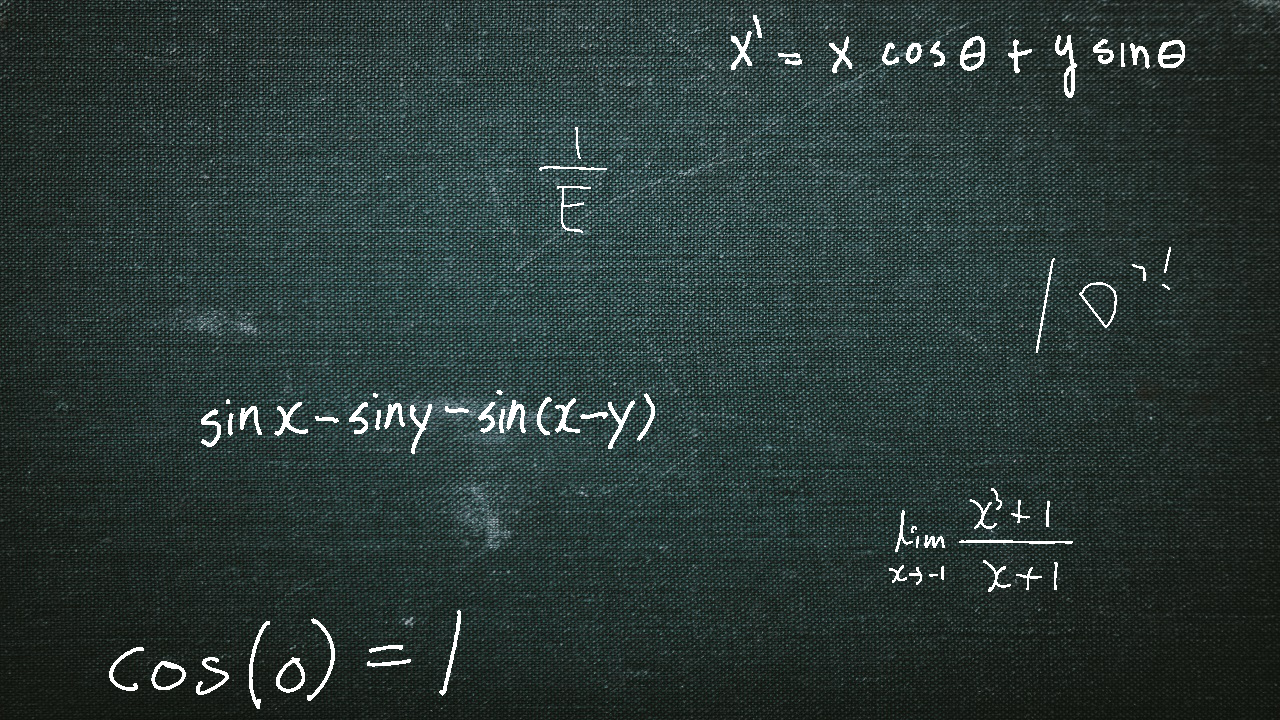 x' = x cosθ + y sinθ
1/E
10^7!
sinx - siny - sin(x-y)
lim x→-1 (x³+1)/(x+1)
cos(0) = 1